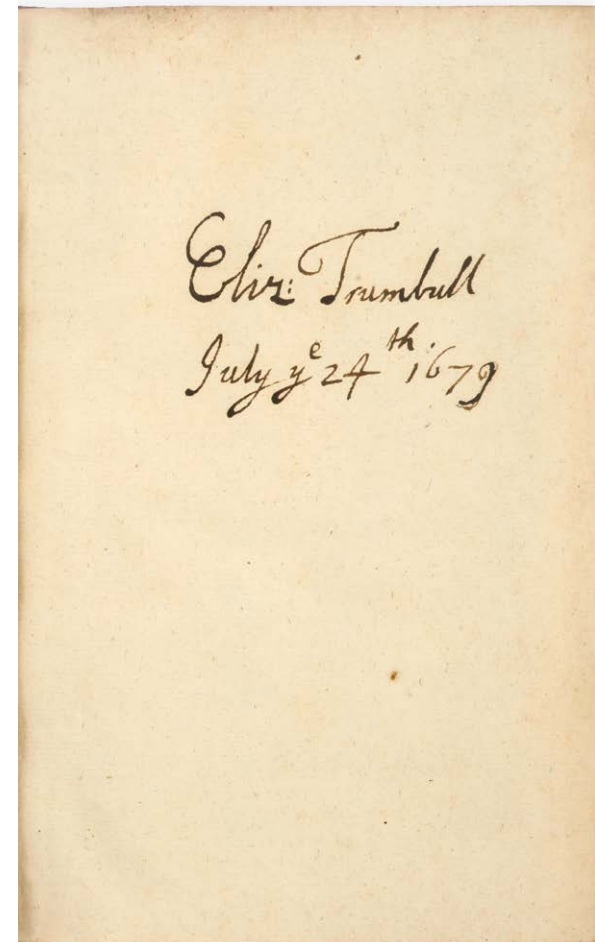 Eliz: Trumbull
July yᵉ 24ᵗʰ. 1679